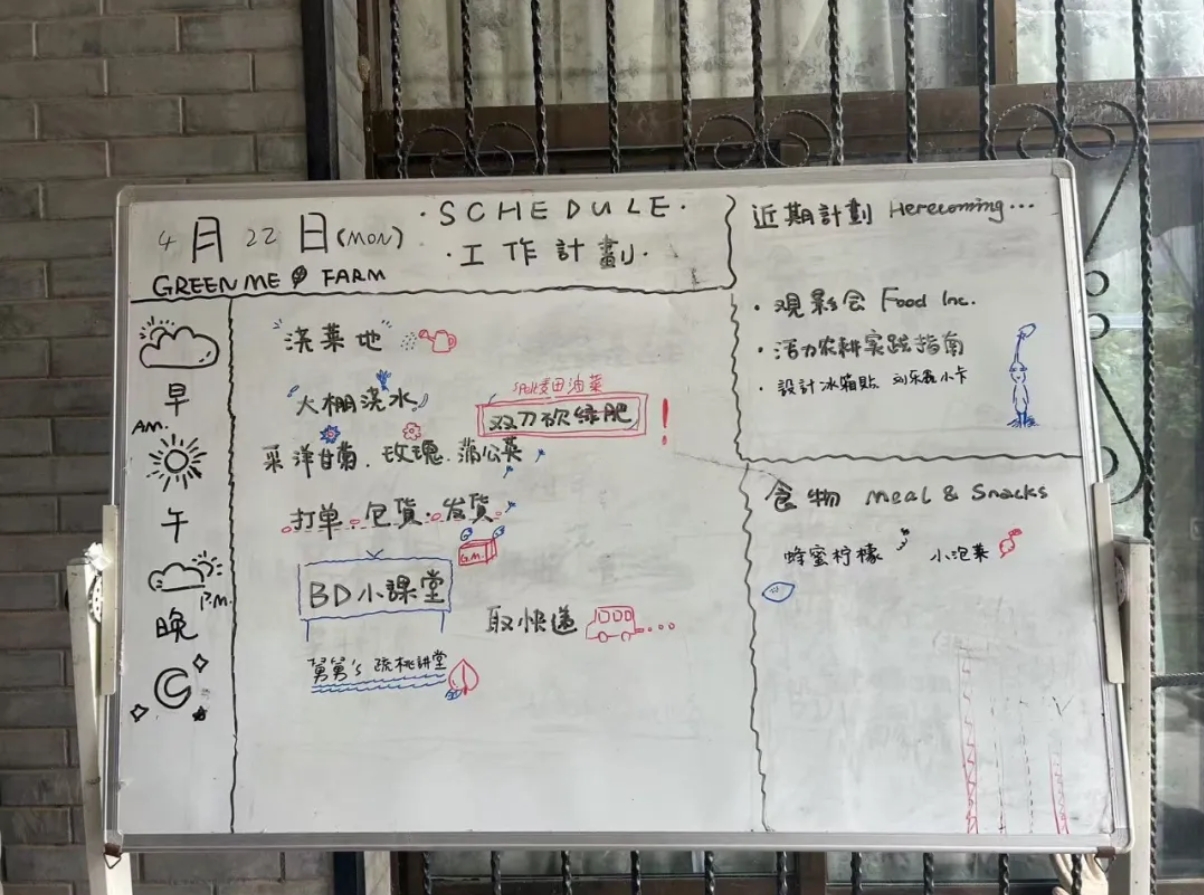 4月22日(MON)
·SCHEDULE·
·工作計劃·
GREEN ME FARM
早
AM.
午
P.M.
晚
"浇菜地"
大棚浇水
田油菜
双刀砍绿肥!
采洋甘菊.玫瑰.蒲公英
打单.包貨.发货
G.M.
BD小課堂
取快递
舅舅's 疏桃講堂
近期計劃 Herecoming...
·观影会 Food Inc.
·活力农耕实践指南
·設計冰箱貼 小卡
食物 meal & Snacks
蜂蜜柠檬 小泡菜